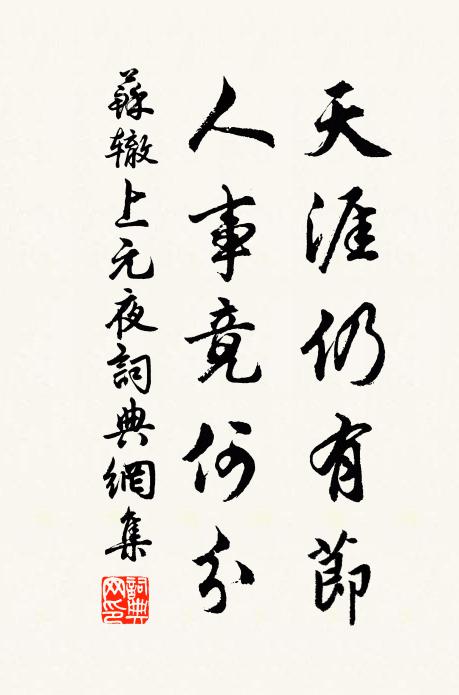 天涯仍有節
人事竟何分
蘇辙上元夜詞典網集
詞典網印